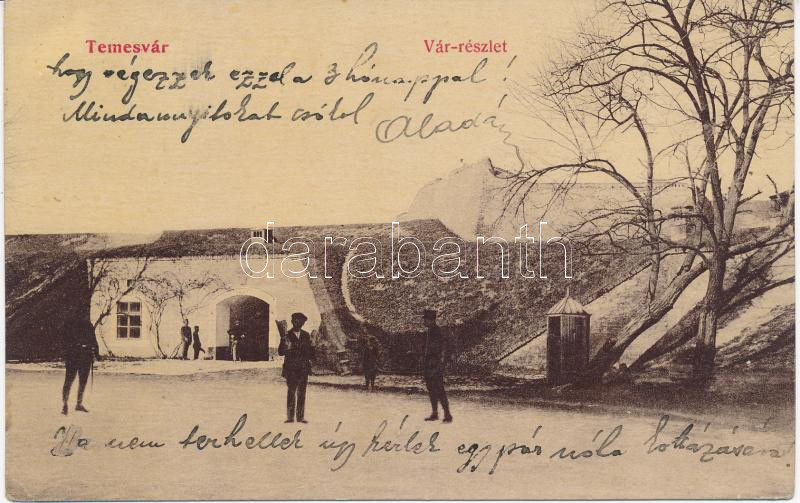 Temesvár
Vár-részlet
hogy végezzek ezzel a 3 hónappal!
Mindannyitokat csókol Aladár
darabanth
Ha nem terhellek úgy kérlek egypár nóta